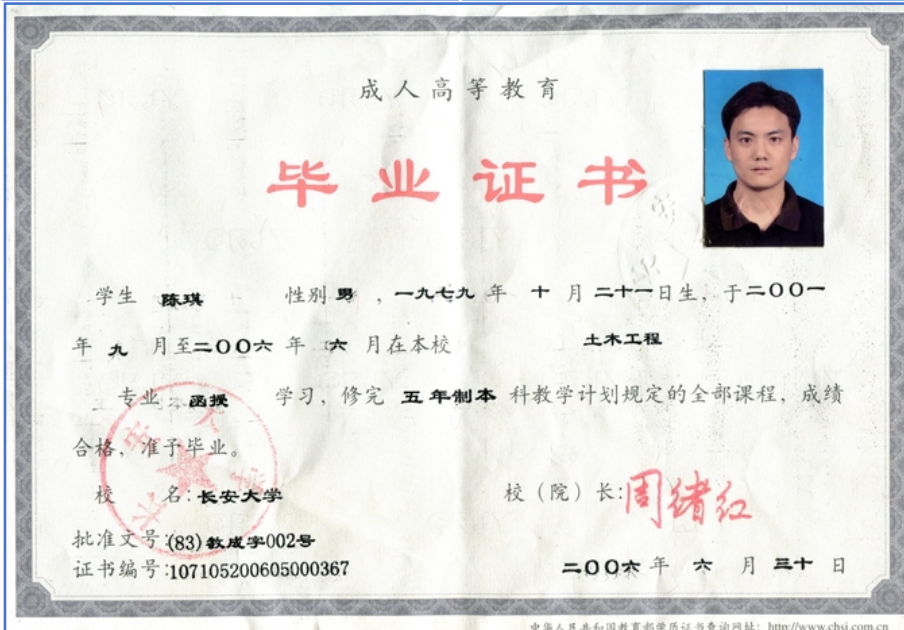 成人高等教育
毕业证书
学生 陈琪 性别 男 ，一九七九 年 十 月 二十一日生，于二〇〇一
年 九 月至二〇〇六 年 六 月在本校 土木工程
专业 函授 学习，修完 五年制本 科教学计划规定的全部课程，成绩
合格，准予毕业。
校 名：长安大学 校（院）长：周绪红
批准文号：(83)教成字002号
证书编号：107105200605000367 二〇〇六 年 六 月 三十 日
中华人民共和国教育部学历证书查询网址：http://www.chsi.com.cn